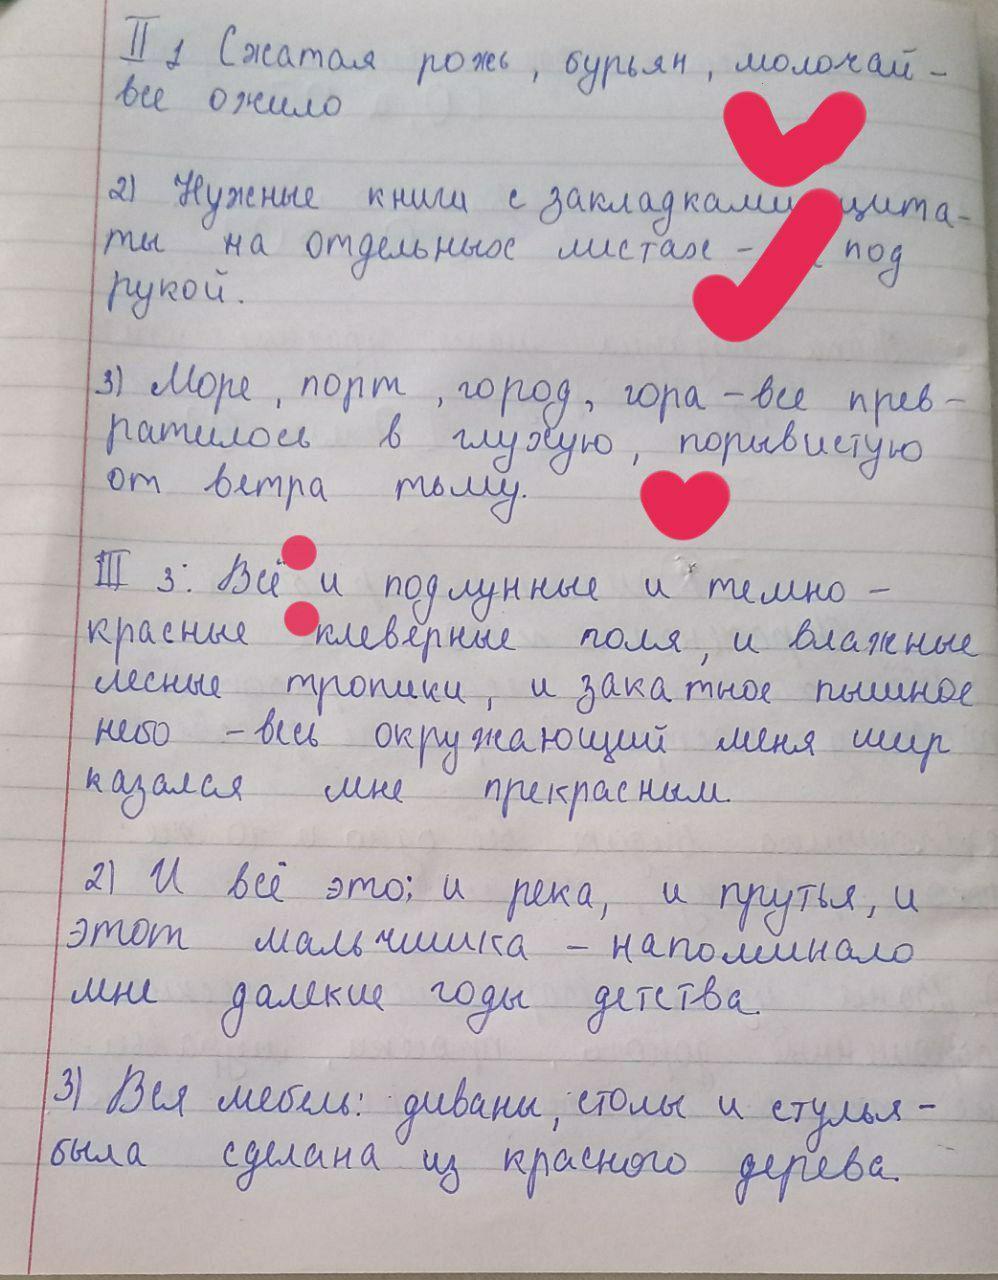 II 1 Сжатая рожь, бурьян, молочай -
все ожило
2) Нужные книги с закладками цита-
ты на отдельных листах - под
рукой.
3) Море, порт, город, гора - все прев-
ратилось в глухую, порывистую
от ветра тьму.
III 3: Всё и подлунные и темно -
красные клеверные поля, и влажные
лесные тропики, и закатное пышное
небо - весь окружающий меня мир
казался мне прекрасным.
2) И всё это; и река, и прутья, и
этот мальчишка - напоминало
мне далекие годы детства.
3) Вся мебель: диваны, столы и стулья -
была сделана из красного дерева.